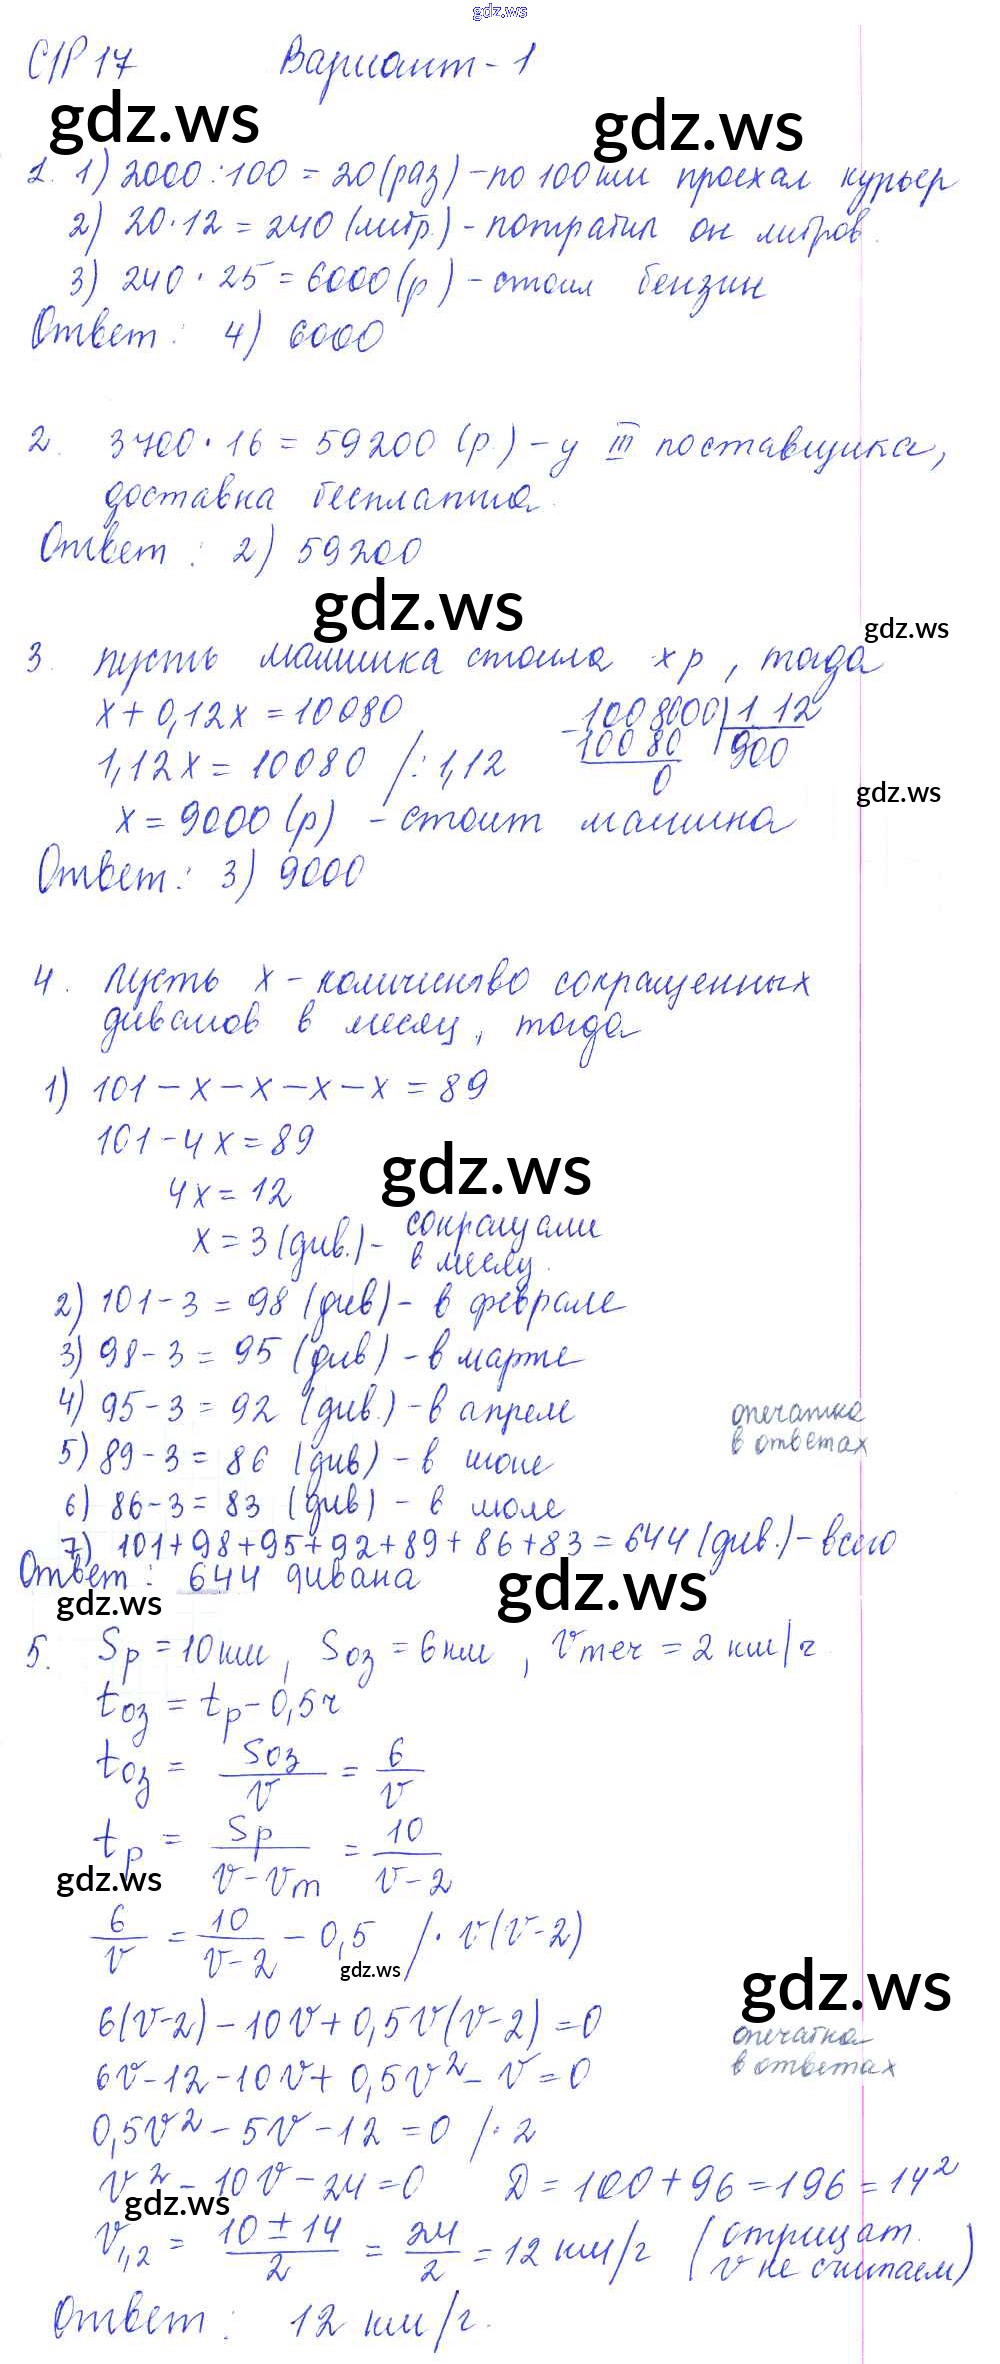 gdz.ws
С/Р 17 Вариант - 1
gdz.ws gdz.ws
1. 1) 2000 : 100 = 20 (раз) - по 100 км проехал курьер
2) 20 · 12 = 240 (литр.) - потратил он литров.
3) 240 · 25 = 6000 (р) - стоил бензин
Ответ: 4) 6000
2. 3700 · 16 = 59200 (р.) - у III поставщика,
доставка бесплатна.
Ответ: 2) 59200
gdz.ws
gdz.ws
3. пусть машинка стоила x р, тогда
x + 0,12x = 10080 - 1008000 | 1 12
1,12x = 10080 / : 1,12 100 80 900
0
gdz.ws
x = 9000 (р) - стоит машина
Ответ: 3) 9000
4. пусть x - количество сокращенных
диванов в месяц, тогда
1) 101 - x - x - x - x = 89
101 - 4x = 89
gdz.ws
4x = 12
x = 3 (див.) - сокращали
в месяц.
2) 101 - 3 = 98 (див) - в феврале
3) 98 - 3 = 95 (див) - в марте
4) 95 - 3 = 92 (див.) - в апреле
опечатка
в ответах
5) 89 - 3 = 86 (див) - в июне
6) 86 - 3 = 83 (див) - в июле
7) 101 + 98 + 95 + 92 + 89 + 86 + 83 = 644 (див.) - всего
Ответ: 644 дивана
gdz.ws gdz.ws
5. Sр = 10 км, Sоз = 6 км, vтеч = 2 км/ч.
tоз = tр - 0,5 ч
tоз = Sоз/v = 6/v
tр = Sр/(v - vт) = 10/(v - 2)
gdz.ws
6/v = 10/(v - 2) - 0,5 / · v(v - 2)
gdz.ws
gdz.ws
6(v - 2) - 10v + 0,5v(v - 2) = 0
опечатка
в ответах
6v - 12 - 10v + 0,5v² - v = 0
0,5v² - 5v - 12 = 0 / · 2
v² - 10v - 24 = 0 D = 100 + 96 = 196 = 14²
gdz.ws
v1,2 = (10 ± 14)/2 = 24/2 = 12 км/ч (отрицат.
v не считаем)
Ответ: 12 км/ч.